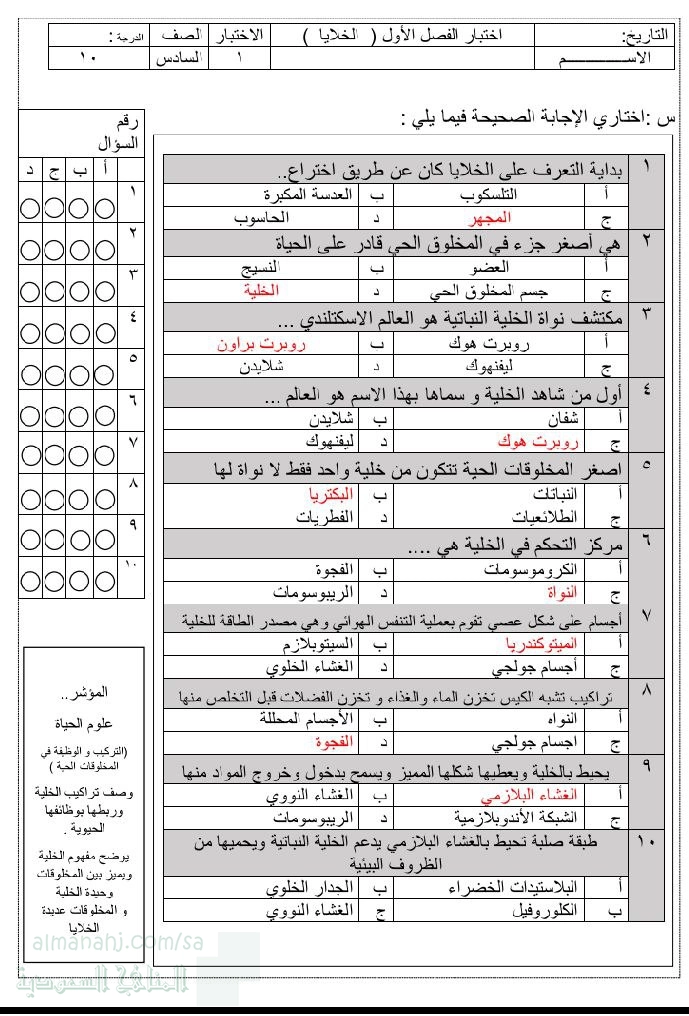 التاريخ: اختبار الفصل الأول ( الخلايا ) الاختبار الصف الدرجة :
الاســـــــــــم ١ السادس ١٠
س :اختاري الإجابة الصحيحة فيما يلي :
١ بداية التعرف على الخلايا كان عن طريق اختراع..
أ التلسكوب ب العدسة المكبرة
ج المجهر د الحاسوب
٢ هي أصغر جزء في المخلوق الحي قادر على الحياة
أ العضو ب النسيج
ج جسم المخلوق الحي د الخلية
٣ مكتشف نواة الخلية النباتية هو العالم الاسكتلندي ...
أ روبرت هوك ب روبرت براون
ج ليفنهوك د شلايدن
٤ أول من شاهد الخلية و سماها بهذا الاسم هو العالم ...
أ شفان ب شلايدن
ج روبرت هوك د ليفنهوك
٥ اصغر المخلوقات الحية تتكون من خلية واحد فقط لا نواة لها
أ النباتات ب البكتريا
ج الطلائعيات د الفطريات
٦ مركز التحكم في الخلية هي ....
أ الكروموسومات ب الفجوة
ج النواة د الريبوسومات
٧ أجسام على شكل عصي تقوم بعملية التنفس الهوائي وهي مصدر الطاقة للخلية
أ الميتوكندريا ب السيتوبلازم
ج أجسام جولجي د الغشاء الخلوي
٨ تراكيب تشبه الكيس تخزن الماء والغذاء و تخزن الفضلات قبل التخلص منها
أ النواه ب الأجسام المحللة
ج اجسام جولجي د الفجوة
٩ يحيط بالخلية ويعطيها شكلها المميز ويسمح بدخول وخروج المواد منها
أ الغشاء البلازمي ب الغشاء النووي
ج الشبكة الأندوبلازمية د الريبوسومات
١٠ طبقة صلبة تحيط بالغشاء البلازمي يدعم الخلية النباتية ويحميها من
الظروف البيئية
أ البلاستيدات الخضراء ب الجدار الخلوي
ب الكلوروفيل ج الغشاء النووي
رقم
السؤال
أ ب ج د
١
٢
٣
٤
٥
٦
٧
٨
٩
١٠
المؤشر..
علوم الحياة
(التركيب و الوظيفة في
المخلوقات الحية )
وصف تراكيب الخلية
وربطها بوظائفها
الحيوية .
يوضح مفهوم الخلية
ويميز بين المخلوقات
وحيدة الخلية
و المخلوقات عديدة
الخلايا
almanahj.com/sa
المناهج السعودية